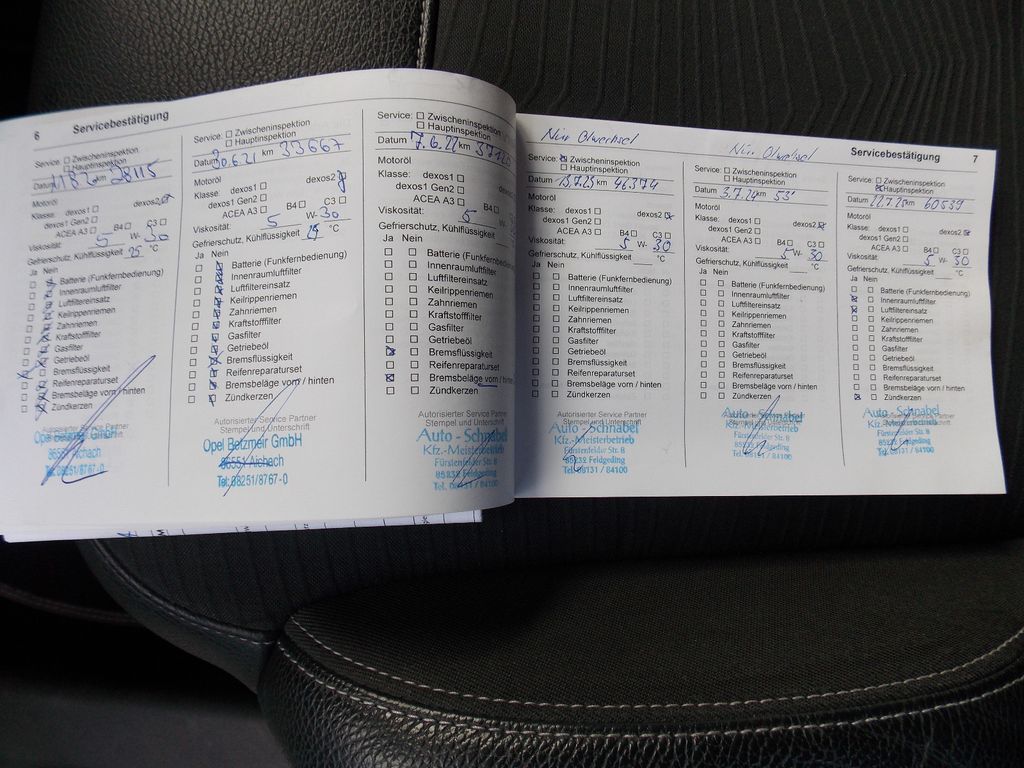 6 Servicebestätigung
Service: Zwischeninspektion
Hauptinspektion
Datum km 28115
Motoröl
Klasse: dexos1 dexos2
dexos1 Gen2
ACEA A3 B4 C3
Viskosität: 5 W- 30
Gefrierschutz, Kühlflüssigkeit 25 °C
Ja Nein
Batterie (Funkfernbedienung)
Innenraumluftfilter
Luftfiltereinsatz
Keilrippenriemen
Zahnriemen
Kraftstofffilter
Gasfilter
Getriebeöl
Bremsflüssigkeit
Reifenreparaturset
Bremsbeläge vorn / hinten
Zündkerzen
Autorisierter Service Partner
Stempel und Unterschrift
Opel Betzmeir GmbH
86551 Aichach
Tel. 08251/8767-0
Service: Zwischeninspektion
Hauptinspektion
Datum 30.6.21 km 33667
Motoröl
Klasse: dexos1 dexos2
dexos1 Gen2
ACEA A3 B4 C3
Viskosität: 5 W- 30
Gefrierschutz, Kühlflüssigkeit °C
Ja Nein
Batterie (Funkfernbedienung)
Innenraumluftfilter
Luftfiltereinsatz
Keilrippenriemen
Zahnriemen
Kraftstofffilter
Gasfilter
Getriebeöl
Bremsflüssigkeit
Reifenreparaturset
Bremsbeläge vorn / hinten
Zündkerzen
Autorisierter Service Partner
Stempel und Unterschrift
Opel Betzmeir GmbH
86551 Aichach
Tel. 08251/8767-0
Service: Zwischeninspektion
Hauptinspektion
Datum 7.6.22 km
Motoröl
Klasse: dexos1
dexos1 Gen2
ACEA A3
Viskosität: 5
Gefrierschutz, Kühlflüssigkeit
Ja Nein
Batterie (Funkfernbedienung)
Innenraumluftfilter
Luftfiltereinsatz
Keilrippenriemen
Zahnriemen
Kraftstofffilter
Gasfilter
Getriebeöl
Bremsflüssigkeit
Reifenreparaturset
Bremsbeläge vorn /
Zündkerzen
Autorisierter Service Partner
Stempel und Unterschrift
Auto - Schnabel
Kfz.-Meisterbetrieb
Fürstenfelder Str. 8
85232 Feldgeding
Tel. 08131 / 84100
Nur Ölwechsel
Service: Zwischeninspektion
Hauptinspektion
Datum 13.7.23 km 46374
Motoröl
Klasse: dexos1 dexos2
dexos1 Gen2
ACEA A3 B4 C3
Viskosität: 5 W- 30
Gefrierschutz, Kühlflüssigkeit °C
Ja Nein
Batterie (Funkfernbedienung)
Innenraumluftfilter
Luftfiltereinsatz
Keilrippenriemen
Zahnriemen
Kraftstofffilter
Gasfilter
Getriebeöl
Bremsflüssigkeit
Reifenreparaturset
Bremsbeläge vorn / hinten
Zündkerzen
Autorisierter Service Partner
Stempel und Unterschrift
Auto - Schnabel
Kfz.-Meisterbetrieb
Fürstenfelder Str. 8
85232 Feldgeding
Tel. 08131 / 84100
Nur Ölwechsel
Service: Zwischeninspektion
Hauptinspektion
Datum 3.7.24 km
Motoröl
Klasse: dexos1 dexos2
dexos1 Gen2
ACEA A3 B4 C3
Viskosität: 5 W- 30
Gefrierschutz, Kühlflüssigkeit °C
Ja Nein
Batterie (Funkfernbedienung)
Innenraumluftfilter
Luftfiltereinsatz
Keilrippenriemen
Zahnriemen
Kraftstofffilter
Gasfilter
Getriebeöl
Bremsflüssigkeit
Reifenreparaturset
Bremsbeläge vorn / hinten
Zündkerzen
Auto - Schnabel
Kfz.-Meisterbetrieb
Fürstenfelder Str. 8
85232 Feldgeding
Tel. 08131 / 84100
Servicebestätigung 7
Service: Zwischeninspektion
Hauptinspektion
Datum 22.7.25 km 60539
Motoröl
Klasse: dexos1 dexos2
dexos1 Gen2
ACEA A3 B4 C3
Viskosität: 5 W- 30
Gefrierschutz, Kühlflüssigkeit °C
Ja Nein
Batterie (Funkfernbedienung)
Innenraumluftfilter
Luftfiltereinsatz
Keilrippenriemen
Zahnriemen
Kraftstofffilter
Gasfilter
Getriebeöl
Bremsflüssigkeit
Reifenreparaturset
Bremsbeläge vorn / hinten
Zündkerzen
Auto - Schnabel
Kfz.-Meisterbetrieb
Fürstenfelder Str. 8
85232 Feldgeding
Tel. 08131 / 84100